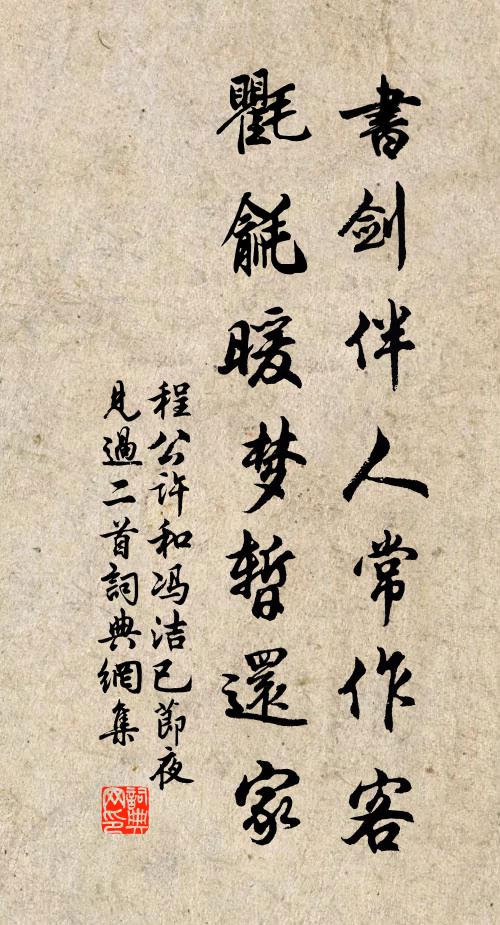 書劍伴人常作客
氍毹暖梦暫還家
程公許和冯洁已節夜
見過二首詞典網集
詞典
网印